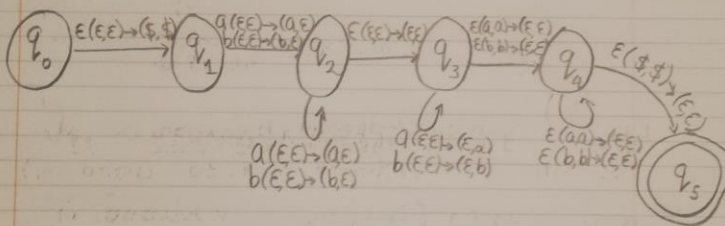 q₀
ε(ε,ε)→($,$)
q₁
a(ε,ε)→(a,ε)
b(ε,ε)→(b,ε)
q₂
a(ε,ε)→(a,ε)
b(ε,ε)→(b,ε)
ε(ε,ε)→(ε,ε)
q₃
a(ε,ε)→(ε,a)
b(ε,ε)→(ε,b)
ε(a,a)→(ε,ε)
ε(b,b)→(ε,ε)
q₄
ε(a,a)→(ε,ε)
ε(b,b)→(ε,ε)
ε($,$)→(ε,ε)
q₅